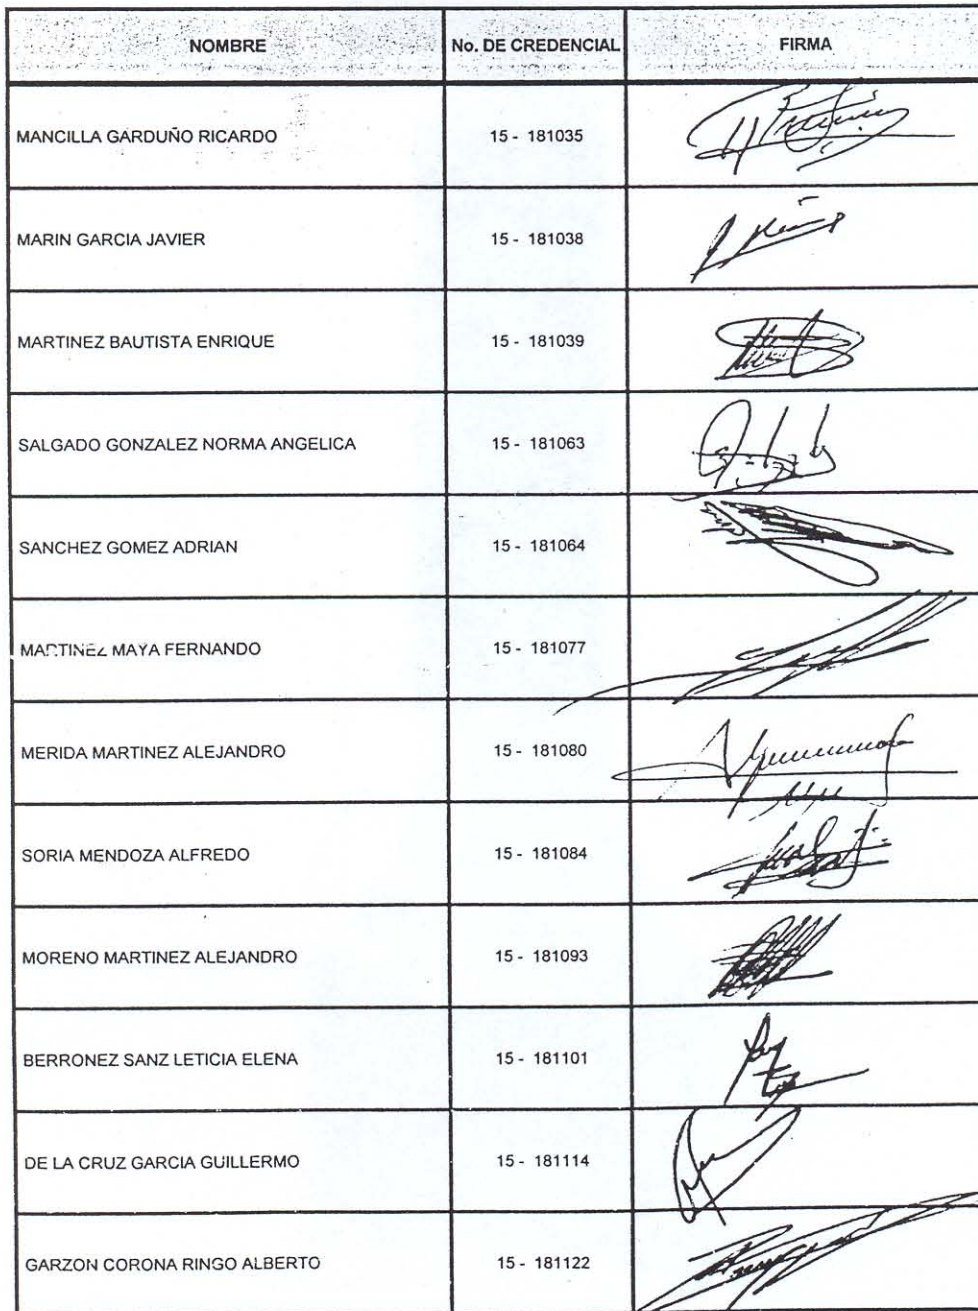 NOMBRE No. DE CREDENCIAL FIRMA
MANCILLA GARDUÑO RICARDO 15 - 181035
MARIN GARCIA JAVIER 15 - 181038
MARTINEZ BAUTISTA ENRIQUE 15 - 181039
SALGADO GONZALEZ NORMA ANGELICA 15 - 181063
SANCHEZ GOMEZ ADRIAN 15 - 181064
MARTINEZ MAYA FERNANDO 15 - 181077
MERIDA MARTINEZ ALEJANDRO 15 - 181080
SORIA MENDOZA ALFREDO 15 - 181084
MORENO MARTINEZ ALEJANDRO 15 - 181093
BERRONEZ SANZ LETICIA ELENA 15 - 181101
DE LA CRUZ GARCIA GUILLERMO 15 - 181114
GARZON CORONA RINGO ALBERTO 15 - 181122